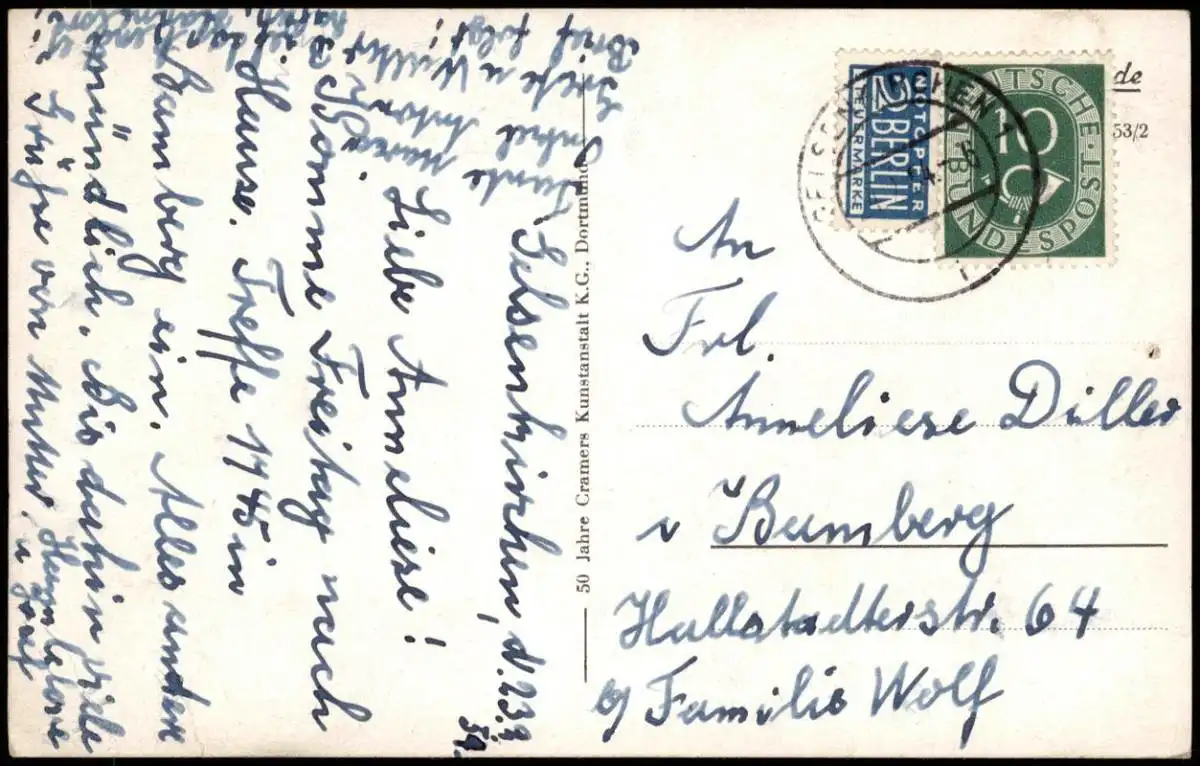 Gelsenkirchen, d. 23.9.
54.
Liebe Anneliese!
Komme Freitag nach
Hause. Treffe 17 45 in
Bamberg ein. Alles andere
mündlich. Bis dahin viele
Grüße von Mutter,
Tante Maria
Onkel Anton
Grete u Walter
Brief folgt!
50 Jahre Cramers Kunstanstalt K.G., Dortmund
NOTOPFER
2 BERLIN
STEUERMARKE
DEUTSCHE BUNDESPOST
10
GELSENKIRCHEN 1
de
53/2
An
Frl.
Anneliese Diller
Bamberg
Hallstadterstr. 64
b/ Familie Wolf